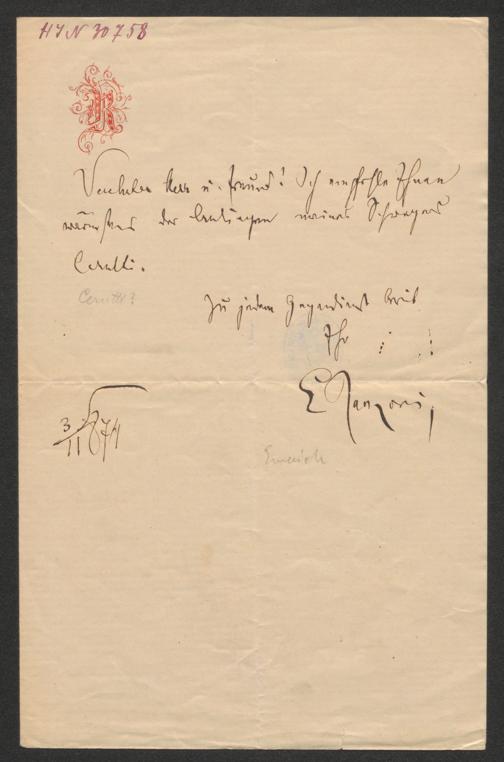 HIN 30758
R
Verehrter Herr u. Freund! Ich empfehle Ihnen
wärmstens das meines Schwagers
Cerutti.
Cerutti?
Zu jedem Gegendienst bereit
Ihr
E Ranzoni,
3/11 874
Emerich